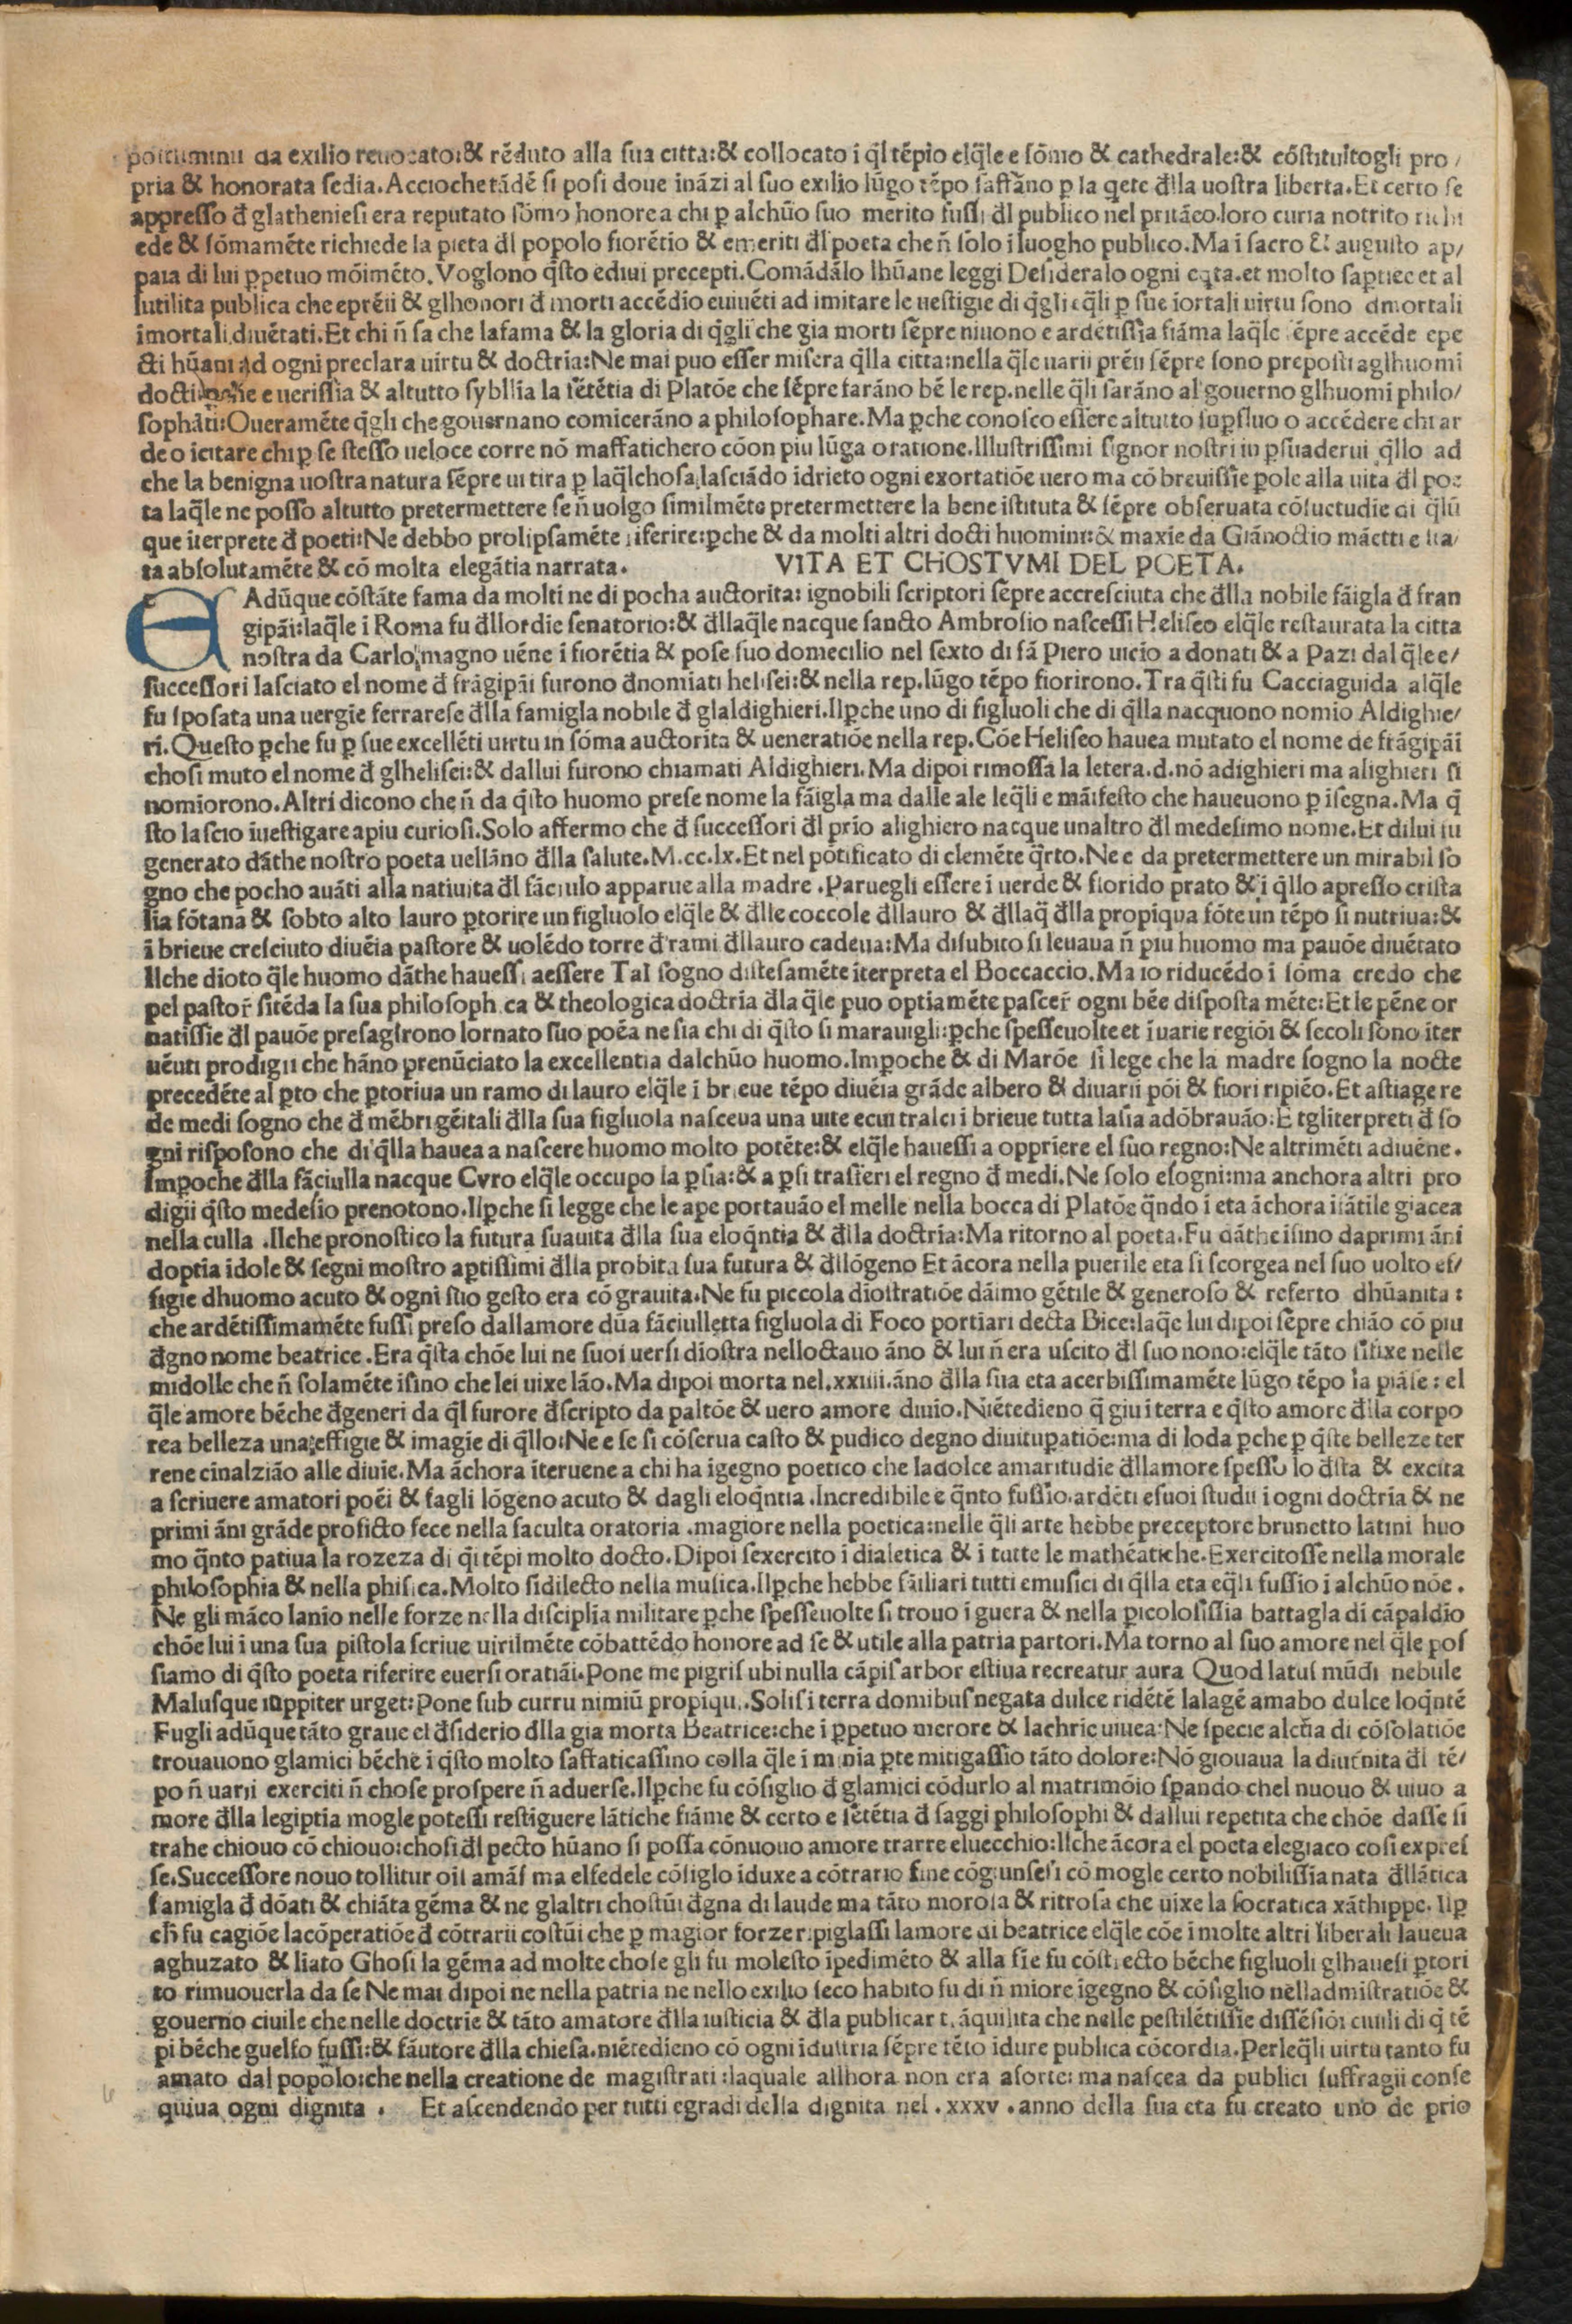 postiminii da exilio reuocato:& rēduto alla ſua citta:& collocato i q̄l tēpio elq̄le e ſōmo & cathedrale:& cōſtituitogli pro/
pria & honorata ſedia. Acciochetādē ſi poſi doue ināzi al ſuo exilio lūgo tēpo ſaffāno ꝑ la qete đlla uoſtra liberta. Et certo ſe
appreſſo đ glathenieſi era reputato ſōmo honore a chi ꝑ alchūo ſuo merito fuſſi đl publico nel pritāeo loro curia notrito richi
ede & ſōmamēte richiede la pieta đl popolo fiorētio & emeriti đl poeta che n̄ ſolo i luogho publico. Ma i ſacro & auguſto ap/
paia di lui ꝑpetuo mōimēto. Voglono q̄ſto ediui precepti. Comādālo lhūane leggi Deſideralo ogni eq̄ta. et molto ſaptiec et al
lutilita publica che eprēii & glhonori đ morti accēdio euiuēti ad imitare le ueſtigie di q̄gli eq̄li ꝑ ſue iortali uirtu ſono đmortali
imortali diuētati. Et chi n̄ ſa che lafama & la gloria di q̄gli che gia morti ſēpre niuono e ardētiſſia fiāma laq̄le ſēpre accēde epe
cti hūani ad ogni preclara uirtu & doctria: Ne mai puo eſſer miſera q̄lla citta: nella q̄le uarii prēii ſēpre ſono prepoſti aglhuomi
docti ꝑche e ueriſſia & altutto ſybllia la ſētētia di Platōe che ſēpre ſarāno bē le rep. nelle q̄li ſarāno al gouerno glhuomi philo/
ſophāti: Oueramēte q̄gli che gouernano comicerāno a philoſophare. Ma ꝑche conoſco eſſere altutto ſupſluo o accēdere chi ar
de o icitare chi ꝑ ſe ſteſſo ueloce corre nō maffatichero cōon piu lūga oratione. Illuſtriſſimi ſignor noſtri iu ꝑſuaderui q̄llo ad
che la benigna uoſtra natura ſēpre ui tira ꝑ laq̄lchoſa laſciādo idrieto ogni exortatiōe uero ma cō breuiſſie ꝑole alla uita đl poe
ta laq̄le ne poſſo altutto pretermettere ſe n̄ uolgo ſimilmēte pretermettere la bene iſtituta & ſēpre obſeruata cōſuetudie di q̄lū
que iterprete đ poeti: Ne debbo prolipſamēte riferire: ꝑche & da molti altri docti huomini: & maxie da Giānoctio māetti e ſta/
ta abſolutamēte & cō molta elegātia narrata. VITA ET CHOSTVMI DEL POETA.
E Adūque cōſtāte fama da molti ne di pocha auctorita: ignobili ſcriptori ſēpre accreſciuta che đlla nobile fāigla đ fran
gipāi: laq̄le i Roma fu đllordie ſenatorio: & đllaq̄le nacque ſancto Ambroſio naſceſſi Heliſeo elq̄le reſtaurata la citta
noſtra da Carlo magno uēne i fiorētia & poſe ſuo domecilio nel ſexto di ſā Piero uicio a donati & a Pazi dal q̄le e/
ſucceſſori laſciato el nome đ frāgipāi furono đnomiati heliſei: & nella rep. lūgo tēpo fiorirono. Tra q̄ſti fu Cacciaguida alq̄le
fu ſpoſata una uergie ferrareſe đlla famigla nobile đ glaldighieri. Ilꝑche uno di figluoli che di q̄lla nacquono nomio Aldighie/
ri. Queſto ꝑche fu ꝑ ſue excellēti uirtu in ſōma auctorita & ueneratiōe nella rep. Cōe Heliſeo hauea mutato el nome de frāgipāi
choſi muto el nome đ glheliſei: & dallui furono chiamati Aldighieri. Ma dipoi rimoſſa la letera. d. nō adighieri ma alighieri ſi
nomiorono. Altri dicono che n̄ da q̄ſto huomo preſe nome la fāigla ma dalle ale leq̄li e māifeſto che haueuono ꝑ iſegna. Ma q̄
ſto laſcio iueſtigare apiu curioſi. Solo affermo che đ ſucceſſori đl prio alighiero nacque unaltro đl medeſimo nome. Et dilui fu
generato dāthe noſtro poeta uellāno đlla ſalute. M.cc.lx. Et nel pōtificato di clemēte q̄rto. Ne e da pretermettere un mirabil ſo
gno che pocho auāti alla natiuita đl fāciulo apparue alla madre. Paruegli eſſere i uerde & fiorido prato & i q̄llo apreſſo criſta
lia fōtana & ſobto alto lauro ꝑtorire un figluolo elq̄le & đlle coccole đllauro & đllaq̄ đlla propiqua fōte un tēpo ſi nutriua: &
i brieue creſciuto diuēia paſtore & uolēdo torre đ rami đllauro cadeua: Ma diſubito ſi leuaua n̄ piu huomo ma pauōe diuētato
Ilche dioto q̄le huomo dāthe haueſſi aeſſere Tal ſogno diſteſamēte iterpreta el Boccaccio. Ma io riducēdo i ſōma credo che
pel paſtor̄ ſitēda la ſua philoſophica & theologica doctria đla q̄le puo optiamēte paſcer̄ ogni bēe diſpoſta mēte: Et le pēne or
natiſſie đl pauōe preſagirono lornato ſuo poēa ne ſia chi di q̄ſto ſi marauigli: ꝑche ſpeſſeuolte et i uarie regiōi & ſecoli ſono iter
uēuti prodigii che hāno prenūciato la excellentia dalchūo huomo. Imꝑoche & di Marōe ſi lege che la madre ſogno la nocte
precedēte al ꝑto che ꝑtoriua un ramo di lauro elq̄le i brieue tēpo diuēia grāde albero & diuarii pōi & fiori ripiēo. Et aſtiage re
de medi ſogno che đ mēbri gēitali đlla ſua figluola naſceua una uite ecui tralci i brieue tutta laſia adōbrauāo: E tgliterpreti đ ſo
gni riſpoſono che di q̄lla hauea a naſcere huomo molto potēte: & elq̄le haueſſi a oppriere el ſuo regno: Ne altrimēti adiuēne.
Imꝑoche đlla fāciulla nacque Cyro elq̄le occupo la ꝑſia: & a ꝑſi traſferi el regno đ medi. Ne ſolo eſogni: ma anchora altri pro
digii q̄ſto medeſio prenotono. Ilꝑche ſi legge che le ape portauāo el melle nella bocca di Platōe q̄ndo i eta āchora ifātile giacea
nella culla. Ilche pronoſtico la futura ſuauita đlla ſua eloq̄ntia & đlla doctria: Ma ritorno al poeta. Fu dāthe iſino daprimi āni
doptia idole & ſegni moſtro aptiſſimi đlla probita ſua futura & đllōgeno Et ācora nella puerile eta ſi ſcorgea nel ſuo uolto ef/
figie dhuomo acuto & ogni ſuo geſto era cō grauita. Ne fu piccola dioſtratiōe dāimo gētile & generoſo & referto dhūanita:
che ardētiſſimamēte fuſſi preſo dallamore dūa fāciulletta figluola di Foco portiari decta Bice: laq̄e lui dipoi ſēpre chiāo cō piu
đgno nome beatrice. Era q̄ſta chōe lui ne ſuoi uerſi dioſtra nelloctauo āno & lui n̄ era uſcito đl ſuo nono: elq̄le tāto ſifixe nelle
midolle che n̄ ſolamēte iſino che lei uixe lāo. Ma dipoi morta nel. xxiiii. āno đlla ſua eta acerbiſſimamēte lūgo tēpo la piāſe: el
q̄le amore bēche đgeneri da q̄l furore đſcripto da paltōe & uero amore diuio. Niētedieno q̄ giu i terra e q̄ſto amore đlla corpo
rea belleza una effigie & imagie di q̄llo: Ne e ſe ſi cōſerua caſto & pudico degno diuituꝑatiōe: ma di loda ꝑche ꝑ q̄ſte belleze ter
rene cinalziāo alle diuie. Ma āchora iteruene a chi ha igegno poetico che ladolce amaritudie đllamore ſpeſſo lo đſta & excita
a ſcriuere amatori poēi & fagli lōgeno acuto & dagli eloq̄ntia. Incredibile e q̄nto fuſſio ardēti eſuoi ſtudii i ogni doctria & ne
primi āni grāde proficto fece nella faculta oratoria. magiore nella poetica: nelle q̄li arte hebbe preceptore brunetto latini huo
mo q̄nto patiua la rozeza di q̄i tēpi molto docto. Dipoi ſexercito i dialetica & i tutte le mathēatiche. Exercitoſſe nella morale
philoſophia & nella phiſica. Molto ſidilecto nella muſica. Ilꝑche hebbe fāiliari tutti emuſici di q̄lla eta eq̄li fuſſio i alchūo nōe.
Ne gli māco lanio nelle forze nella diſciplia militare ꝑche ſpeſſeuolte ſi trouo i guera & nella ꝑicoloſiſſia battagla di cāpaldio
chōe lui i una ſua piſtola ſcriue uirilmēte cōbattēdo honore ad ſe & utile alla patria partori. Ma torno al ſuo amore nel q̄le poſ
ſiamo di q̄ſto poeta riferire euerſi oratiāi. Pone me pigriſ ubi nulla cāpiſ arbor eſtiua recreatur aura Quod latuſ mūdi nebule
Maluſque iuppiter urget: Pone ſub curru nimiū propiqui. Soliſ i terra domibuſ negata dulce ridētē lalagē amabo dulce loq̄ntē
Fugli adūque tāto graue el đſiderio đlla gia morta Beatrice: che i ꝑpetuo merore & lachrie uiuea: Ne ſpecie alcūa di cōſolatiōe
trouauono glamici bēche i q̄ſto molto ſaffaticaſſino colla q̄le i minia ꝑte mitigaſſio tāto dolore: Nō giouaua la diutnita đl tē/
po n̄ uarii exerciti n̄ choſe proſpere n̄ aduerſe. Ilꝑche fu cōſiglio đ glamici cōdurlo al matrimōio ſꝑando chel nuouo & uiuo a
more đlla legiptia mogle poteſſi reſtiguere lātiche fiāme & certo e ſētētia đ ſaggi philoſophi & dallui repetita che chōe daſſe ſi
trahe chiouo cō chiouo: choſi đl pecto hūano ſi poſſa cōnuouo amore trarre eluecchio: Ilche ācora el poeta elegiaco coſi expreſ
ſe. Succeſſore nouo tollitur oiſ amāſ ma elfedele cōſiglo iduxe a cōtrario fine cōgiunſeſi cō mogle certo nobiliſſia nata đllātica
famigla đ dōati & chiāta gēma & ne glaltri choſtūi đgna di laude ma tāto moroſa & ritroſa che uixe la ſocratica xāthippe. Ilꝑ
ch̄ fu cagiōe lacōperatiōe đ cōtrarii coſtūi che ꝑ magior forze ripiglaſſi lamore di beatrice elq̄le cōe i molte altri liberali laueua
aghuzato & liato Ghoſi la gēma ad molte choſe gli fu moleſto ipedimēto & alla fie fu cōſtrecto bēche figluoli glhaueſi ꝑtori
to rimuouerla da ſe Ne mai dipoi ne nella patria ne nello exilio ſeco habito fu di n̄ miore igegno & cōſiglio nelladmiſtratiōe &
gouerno ciuile che nelle doctrie & tāto amatore đlla iuſticia & đla publica tāquilita che nelle peſtilētiſſie diſſēſiōi ciuili di q̄ tē
pi bēche guelfo fuſſi: & fāutore đlla chieſa. niētedieno cō ogni iduſtria ſēpre tēto idure publica cōcordia. Perleq̄li uirtu tanto fu
amato dal popolo: che nella creatione de magiſtrati: laquale allhora non era aſorte: ma naſcea da publici ſuffragii conſe
quiua ogni dignita. Et aſcendendo per tutti egradi della dignita nel. xxxv. anno della ſua eta fu creato uno de prio